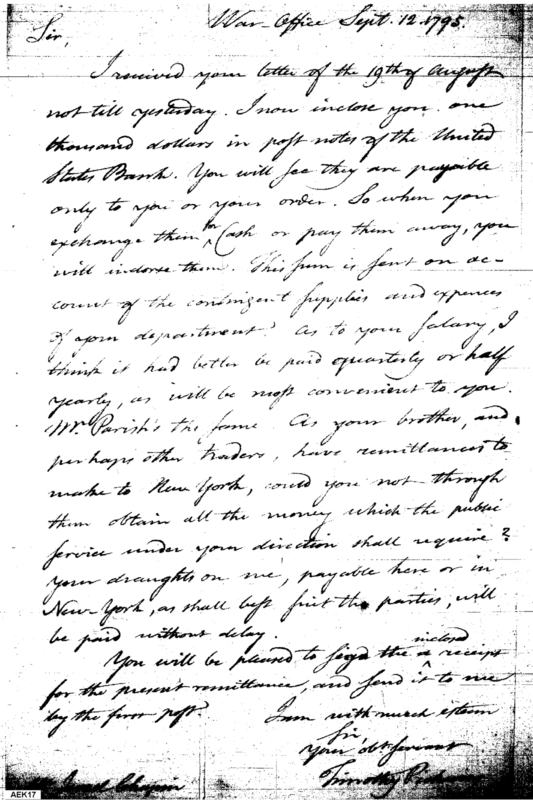 War-Office Sept. 12. 1795.
Sir,
I received your letter of the 19th of August
not till yesterday. I now inclose you one
thousand dollars in post notes of the United
States Bank. You will see they are payable
only to you or your order. So when you
exchange them for Cash or pay them away, you
will indorse them. This sum is sent on ac-
count of the contingent supplies and expences
of your department. As to your salary, I
think it had better be paid quarterly or half
yearly, as will be most convenient to you.
Mr. Parish's the same. As your brother, and
perhaps other traders, have remittances to
make to New York, could you not through
them obtain all the money which the public
service under your direction shall require?
Your draughts on me, payable here or in
New-York, as shall best suit the parties, will
be paid without delay.
You will be pleased to sign the inclosed receipt
for the present remittance, and send it to me
by the first post.
I am with much esteem
Sir
your obt. servant
Timothy
Israel Chapin
AEK17